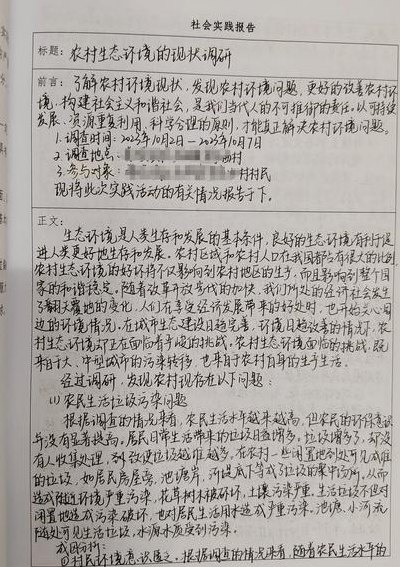 社会实践报告
标题：农村生态环境的现状调研
前言：了解农村环境现状，发现农村环境问题，更好的改善农村环
境，构建社会主义和谐社会，是我们当代人的不可推卸的责任。以可持续
发展、资源重复利用、科学合理的原则，才能真正解决农村环境问题。
1.调查时间：2023年10月2日—2023年10月7日
2.调查地点：
3.参与对象：村村民
现将此次实践活动的有关情况报告于下。
正文：
生态环境是人类生存和发展的基本条件，良好的生态环境有利于促
进人类更好地生存和发展。农村区域和农村人口在我国都占有很大的比例，
农村生态环境的好坏将不仅影响到农村地区的生产，而且影响到整个国
家的和谐稳定。随着改革开放步伐的加快，我们所处的经济社会发生
了翻天覆地的变化，人们在享受经济发展带来的好处时，也开始关心周
边的环境情况。在城市生态建设日趋完善，环境日趋改善的情况下，农
村生态环境却正在面临着于峻的挑战。农村生态环境面临的挑战，既
来自于大、中型城市的污染转移，也来自于农村自身的生产生活。
经过调研，发现农村现存在以下问题：
(1)农民生活垃圾污染
根据调查的情况来看，农民生活水平越来越高，但农民的环保意识
并没有显著提高，居民日常生活带来的垃圾日益增多，垃圾增多了，却没
有人收集处理，导致使垃圾越堆越多，在农村一些闲置地到处可见成堆
的垃圾，如居民房屋旁、池塘岸、河堤底下等成了垃圾的集中场所，从而
造成附近环境严重污染，花草树木被破坏，土壤污染严重，生活垃圾不但对
闲置地造成污染破坏，也对居民生活用水造成严重污染，池塘、小河流
随处可见生活垃圾，水源水质受到污染。
成因分析：
①村民环境意识匮乏。根据调查的情况来看，随着农民生活水平的